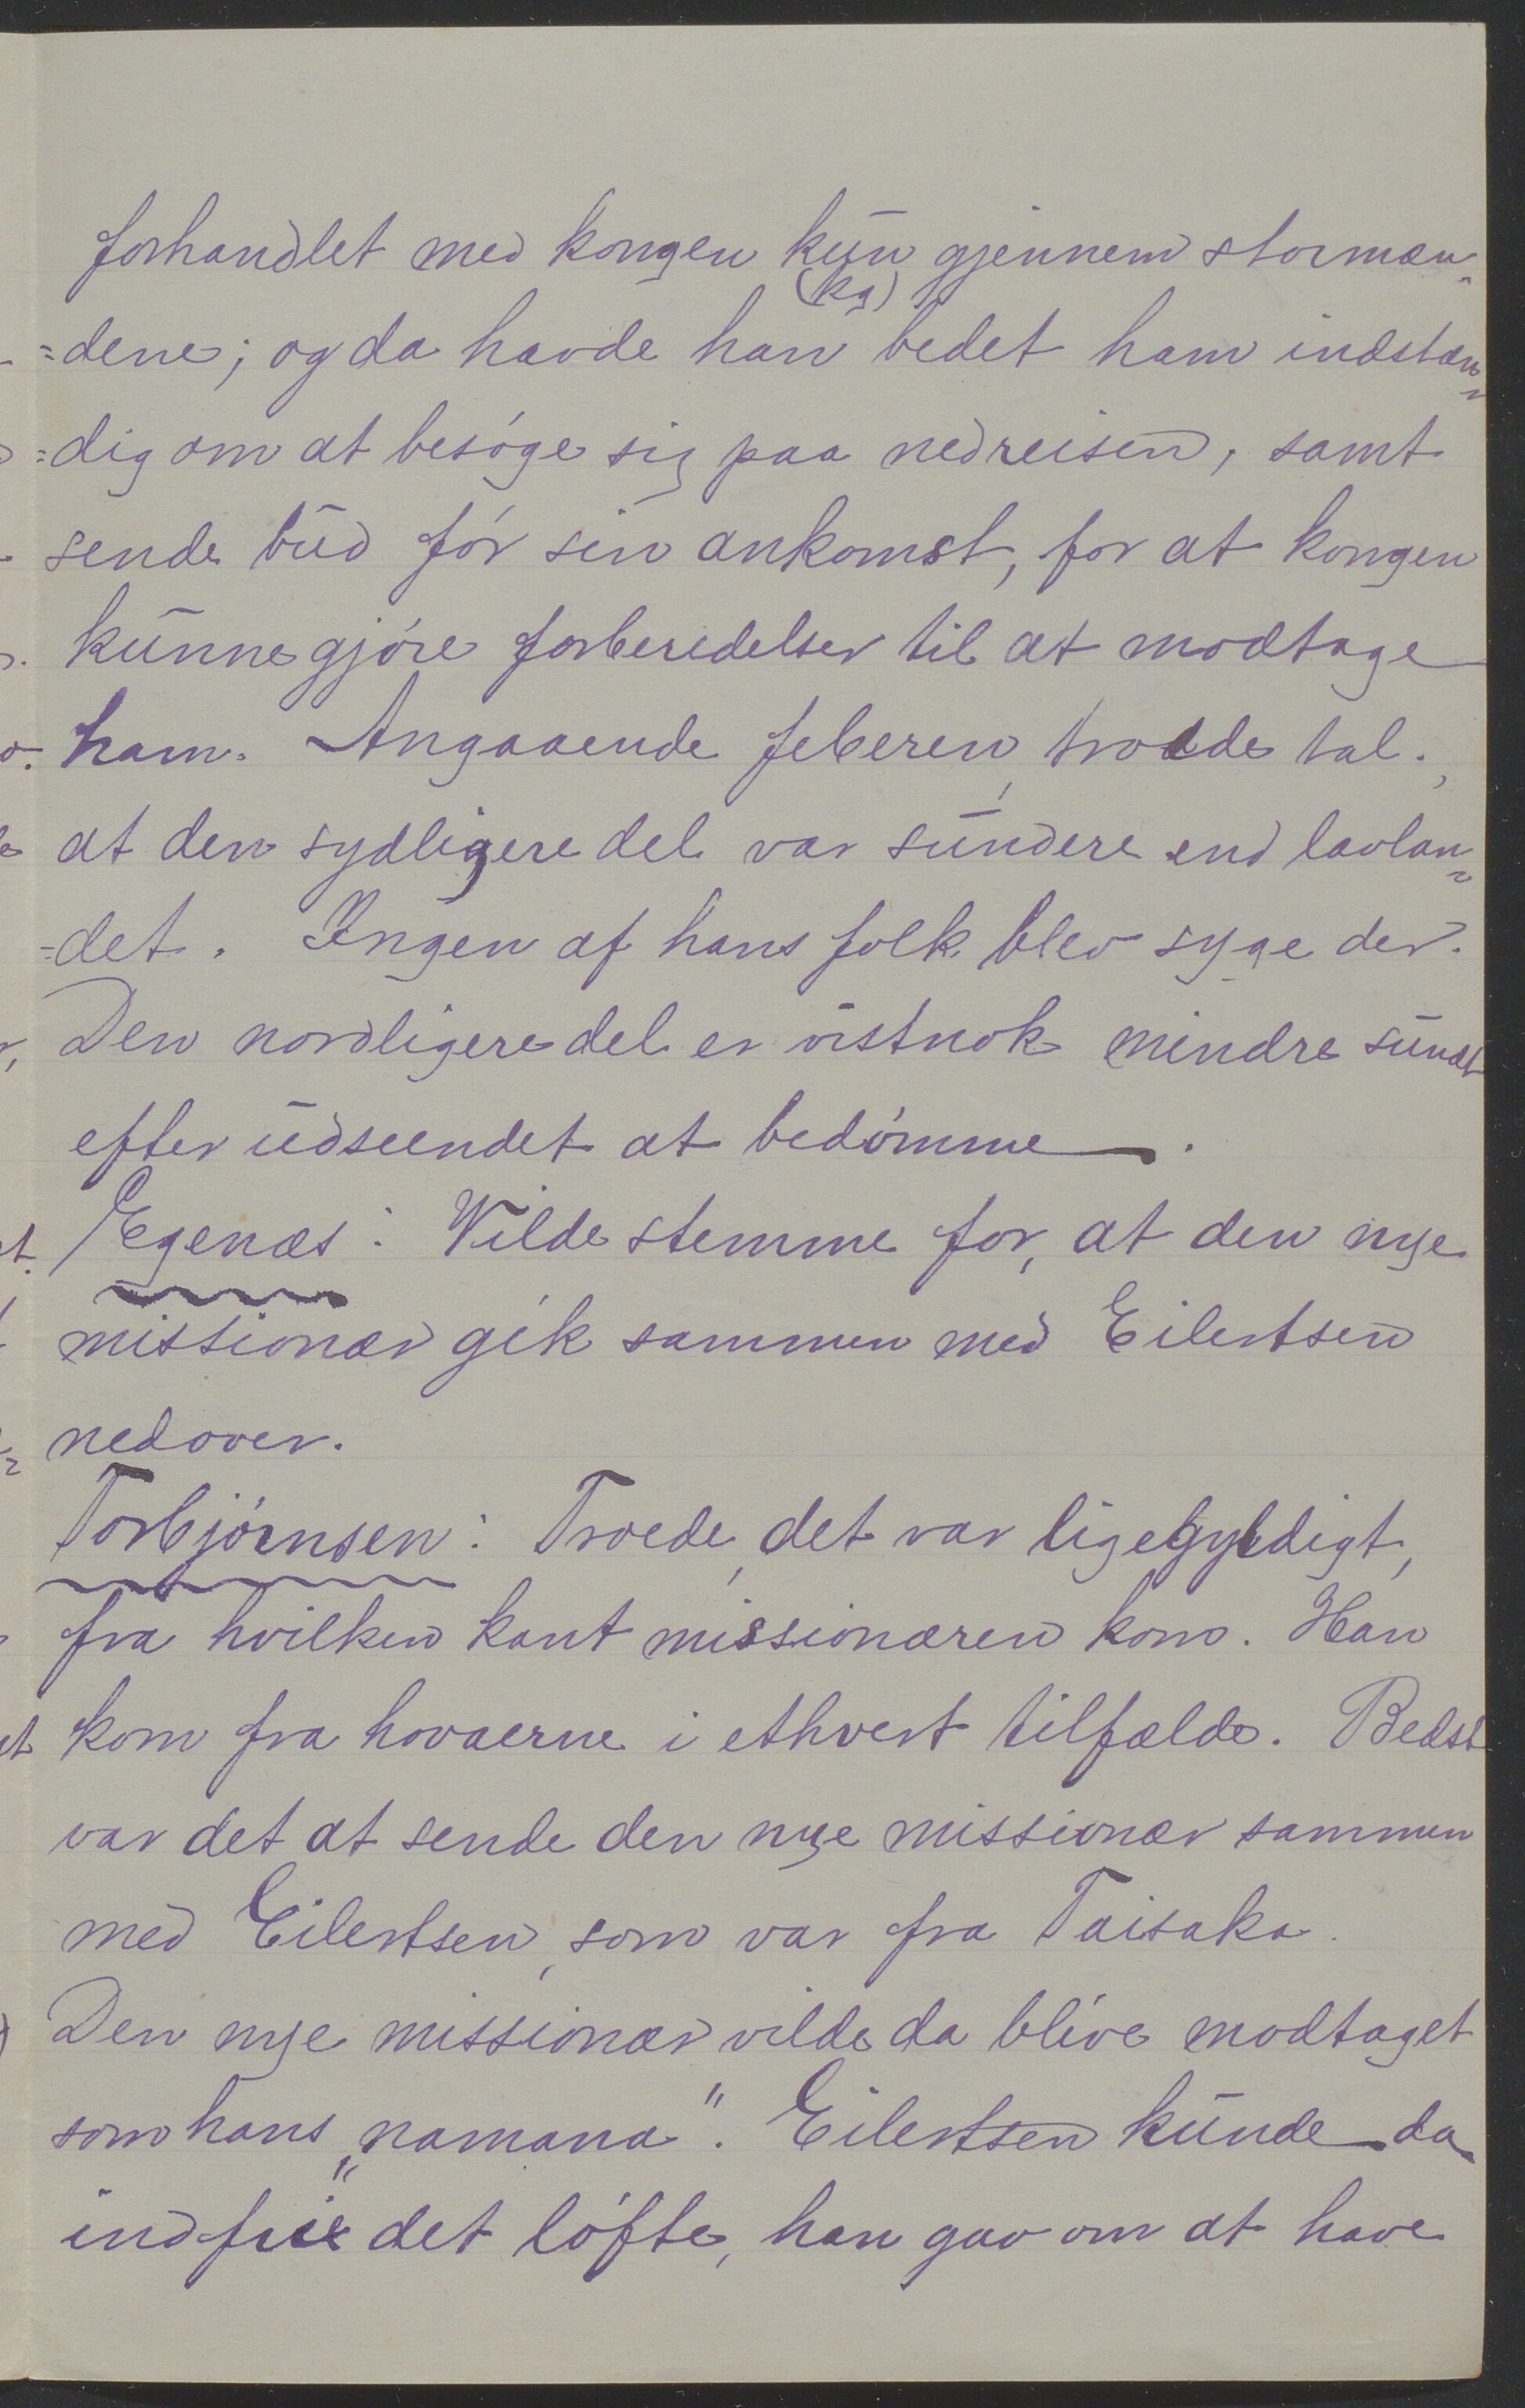 forhandlet med kongen kun gjennem stormæn-
(kg)
=dene; og da havde han bedet ham indstæn-
=dig om at besøge sig paa nedreisen, samt
sende bud før sin ankomst, for at kongen
kunne gjøre forberedelser til at modtage
ham. Angaaende feberen, troede tal.,
at den sydligere del var sundere end lavlan-
=det. Ingen af hans folk blev syge der.
Den nordligere del er vistnok mindre sundt
efter udseendet at bedømme.
Egenæs: Vilde stemme for, at den nye
missionær gik sammen med Eilertsen
nedover.
Torbjørnsen: Troede, det var ligegyldigt,
fra hvilken kant missionæren kom. Han
kom fra hovaerne i ethvert tilfælde. Bedst
var det at sende den nye missionær sammen
med Eilertsen, som var fra Taisaka.
Den nye missionær vilde da blive modtaget
som hans „namana". Eilertsen kunde da
indfrie det løfte, han gav om at have